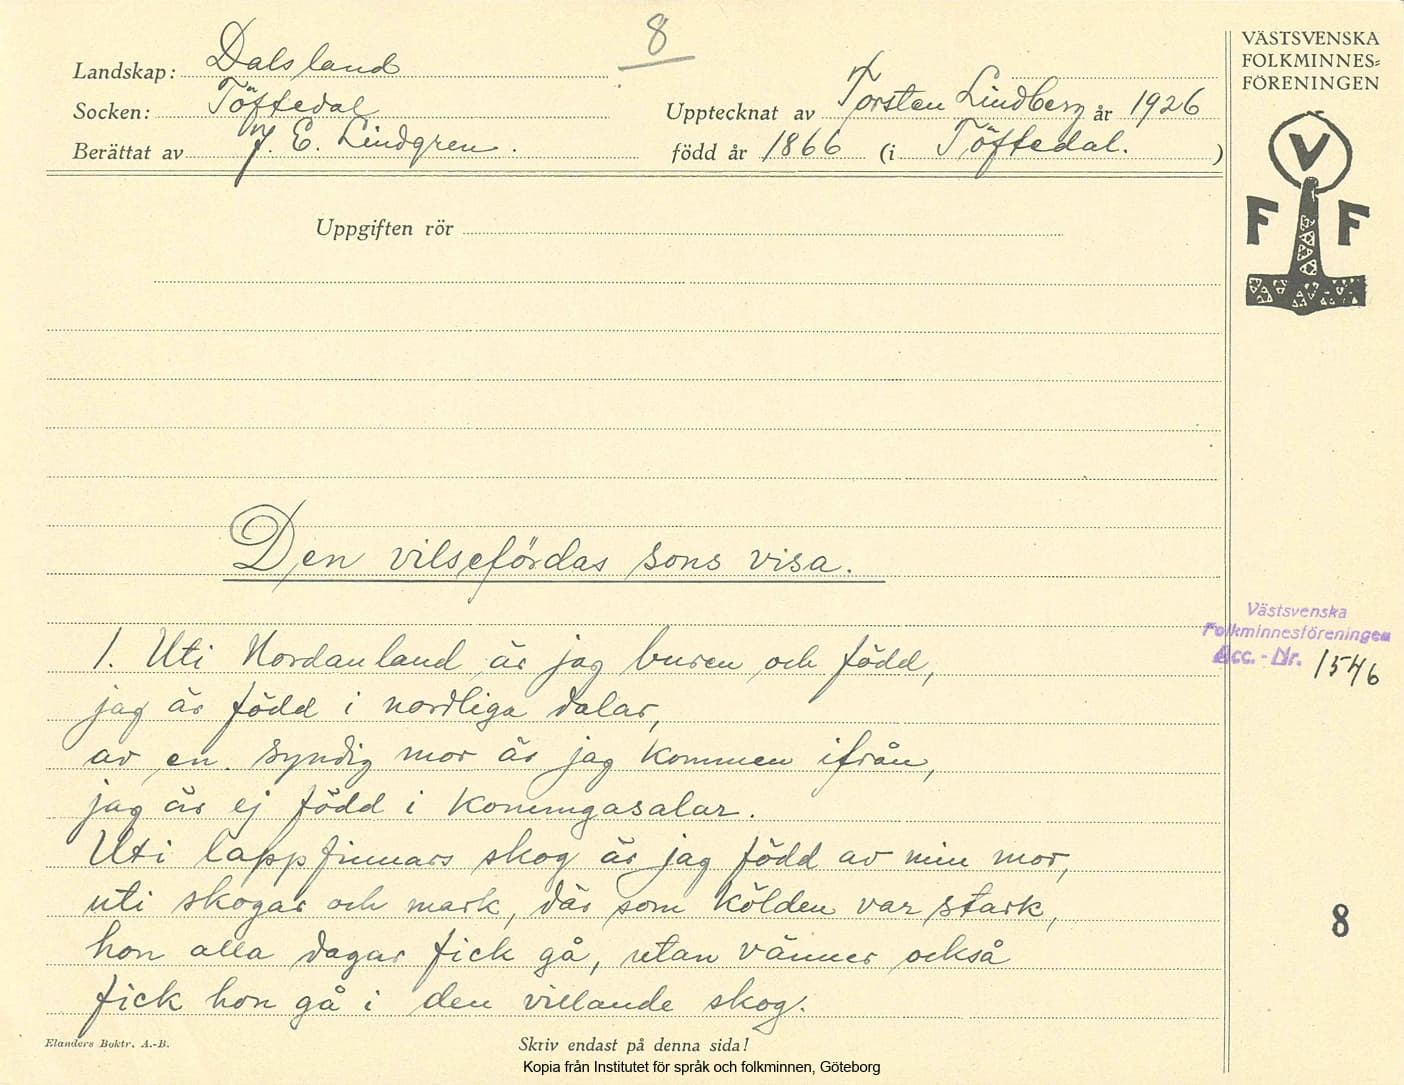 8
Landskap: Dalsland
Socken: Töftedal
Upptecknat av Torsten Lindberg år 1926
Berättat av J. E. Lindgren.
född år 1866 (i Töftedal.)
Uppgiften rör
VÄSTSVENSKA
FOLKMINNES=
FÖRENINGEN
V
F F
Den vilsefördas sons visa.
1. Uti Nordanland är jag buren och född,
jag är född i nordliga dalar,
av en syndig mor är jag kommen ifrån,
jag är ej född i konungasalar.
Uti lappfinnars skog är jag född av min mor,
uti skogar och mark, där som kölden var stark,
hon alla dagar fick gå, utan vänner också
fick hon gå i den villande skog.
Västsvenska
Folkminnesföreningen
Acc. - Nr. 1546
8
Elanders Boktr. A.-B.
Skriv endast på denna sida!
Kopia från Institutet för språk och folkminnen, Göteborg